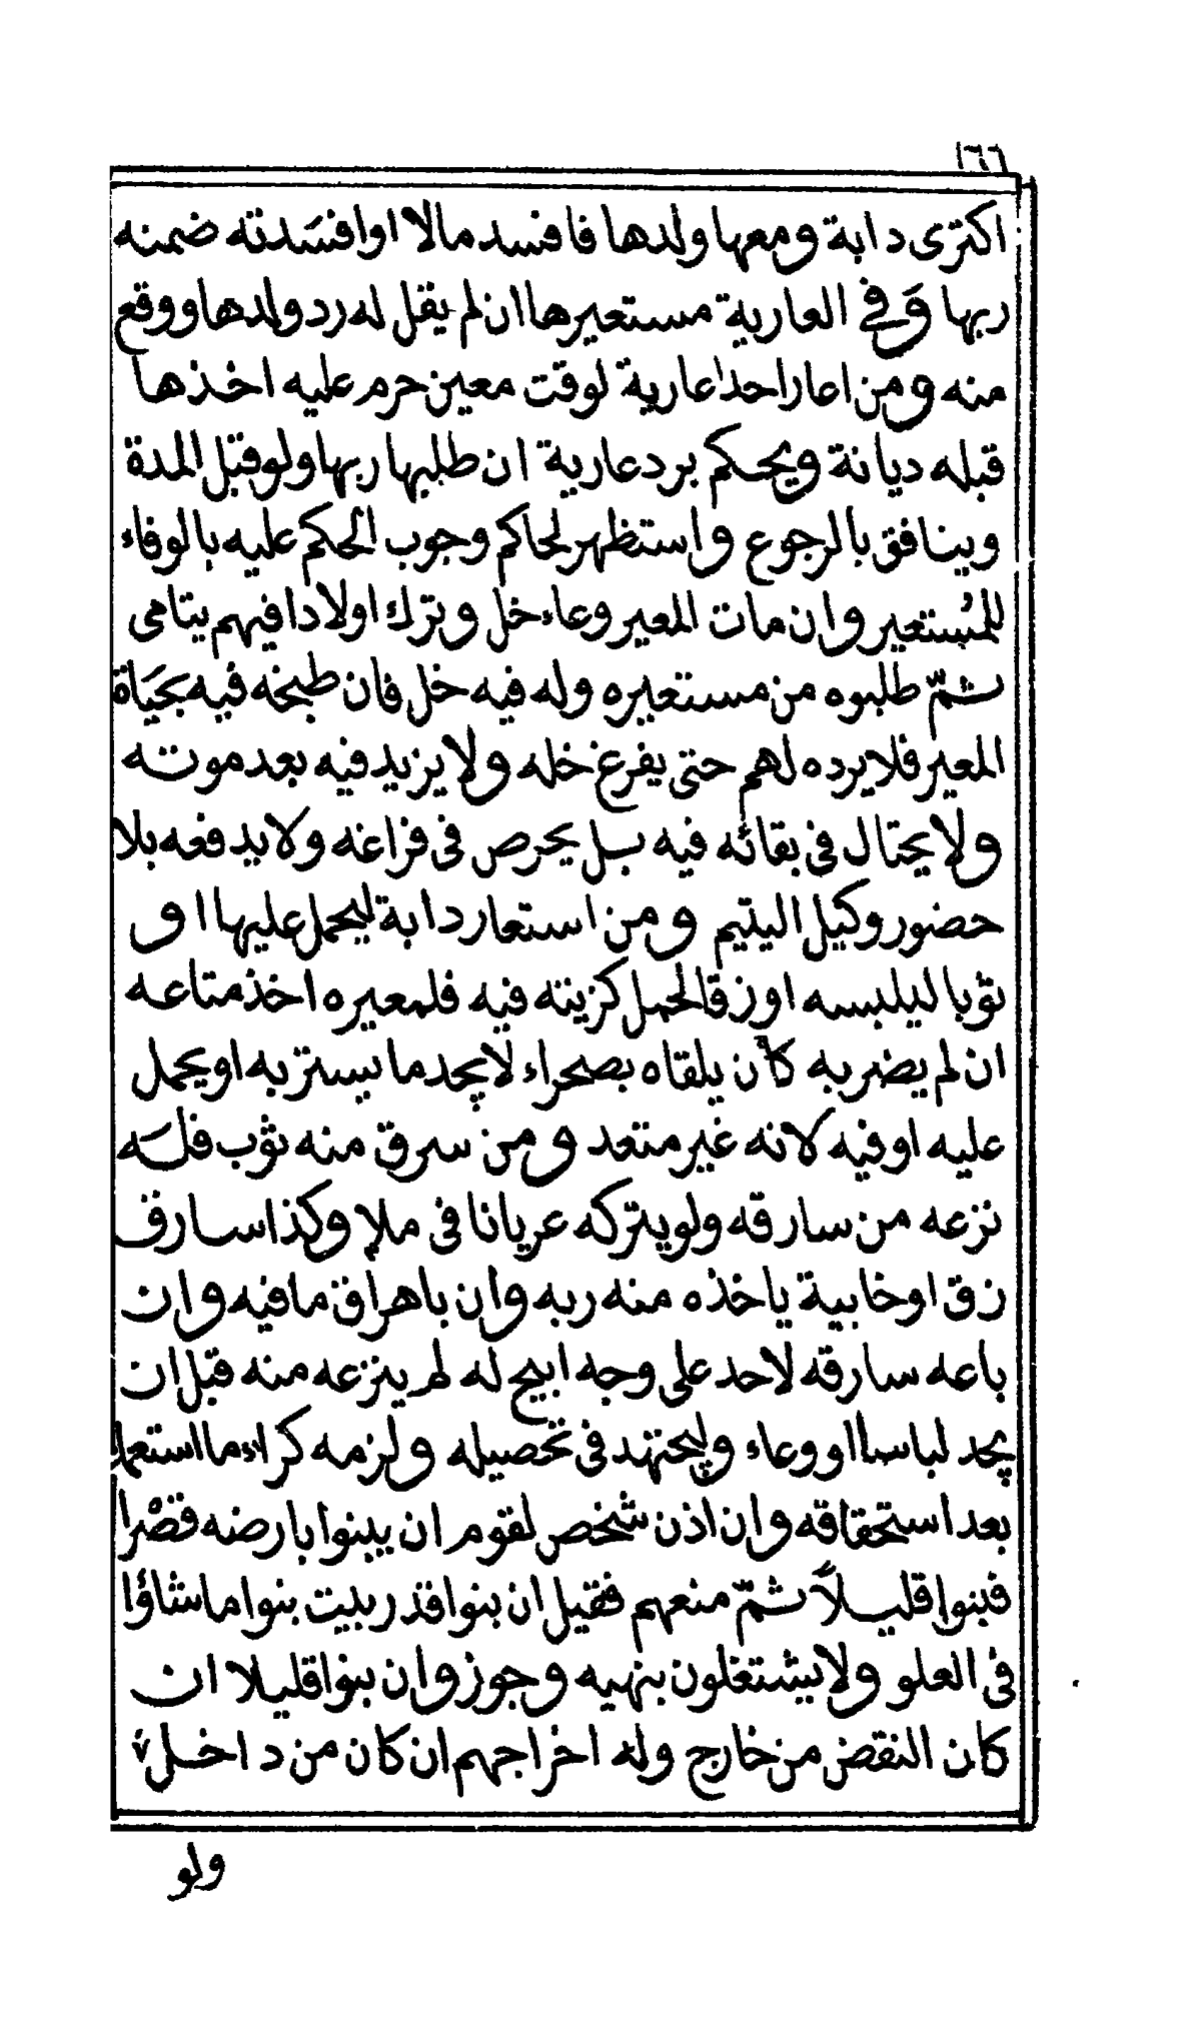 ١٦٦
اكترى دابة ومعها ولدها فافسد مالا او افسَدته ضمنه
ربها وَفي العارية مستعيرها ان لم يقل له رد ولدها ووقع
منه ومن اعار احدا عارية لوقت معين حرم عليه اخذها
قبله ديانة ويحكم برد عارية ان طلبها ربها ولو قبل المدة
وينافق بالرجوع واستظهر لحاكم وجوب الحكم عليه بالوفاء
للمُستعير وان مات المعير وعاء خل وترك اولادا فيهم يتامى
ثمّ طلبوه من مستعيره وله فيه خل فان طبخه فيه بحَيَاة
المعير فلا يرده لهم حتى يفرغ خله ولا يزيد فيه بعد موته
ولا يحتال في بقائه فيه بل يحرص في فراغه ولا يدفعه بلا
حضور وكيل اليتيم ومن استعار دابة ليحمل عليها او
ثوبا ليلبسه او زقا لحمل كزيته فيه فلمعيره اخذ متاعه
ان لم يضر به كأن يلقاه بصحراء لا يجد ما يستتر به او يحمل
عليه او فيه لانه غير متعد ومن سرق منه ثوب فلَه
نزعه من سارقه ولو يتركه عريانا في ملإ وكذا سارق
زق او خابية ياخذه منه ربه وان باهراق ما فيه وان
باعه سارقه لاحد على وجه ابيح له لم ينزعه منه قبل ان
يجد لباسا او وعاء وليجتهد في تحصيله ولزمه كراء ما استعمل
بعد استحقاقه وان اذن شخص لقوم ان يبنوا بارضه قصْرا
فبنوا قليلاً ثمّ منعهم فقيل ان بنوا قدر بيت بنوا ما شاؤا
في العلو ولا يشتغلون بنهيه وجوز وان بنوا قليلا ان
كان النقض من خارج وله اخراجهم ان كان من داخل
ولو